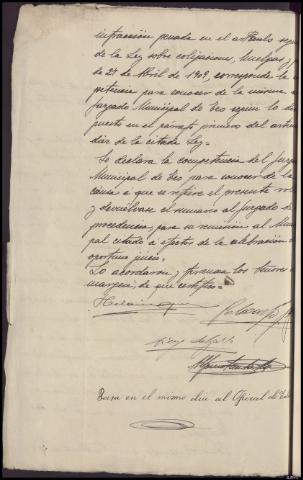 infracción penada en el artículo seg
de la Ley sobre coligaciones, huelgas y
de 27 de Abril de 1909, corresponde la
petencia para conocer de la misma a
Juzgado Municipal de Teo segun lo dis
puesto en el párrafo primero del artícu
diez de la citada Ley.
Se declara la competencia del Juzga
Municipal de Teo para conocer de la
causa a que se refiere el presente
y devuélvase el sumario al Juzgado de
procedencia, para su remisión al Muni
pal citado a efectos de la celebración
oportuno juicio.
Lo acordaron y firman los Señores
margen, de que certifico.
Pasa en el mismo dia al Oficial de